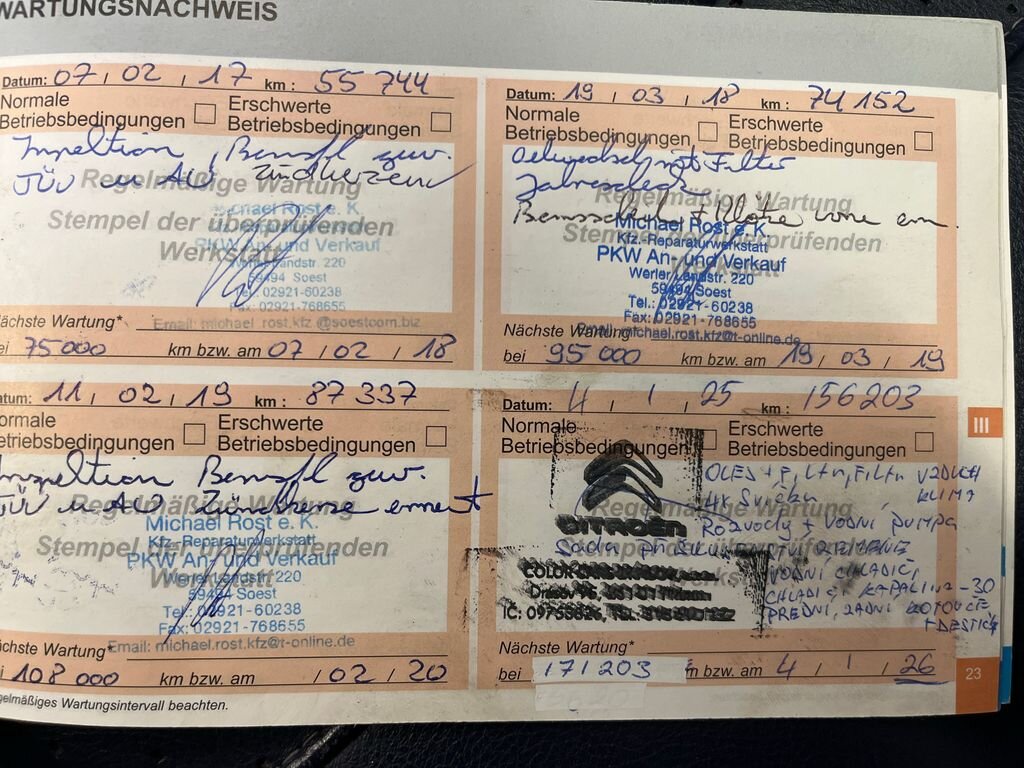 WARTUNGSNACHWEIS
Datum: 07 / 02 / 17 km : 55 744
Normale Betriebsbedingungen
Erschwerte Betriebsbedingungen
Inspektion, Bremsfl
TÜV u AU
Regelmäßige Wartung
Stempel der überprüfenden
Werkstatt
chael Rost e. K.
PKW An- und Verkauf
Werler Landstr. 220
59494 Soest
Tel.: 02921-60238
Fax: 02921-768655
Email: michael_rost.kfz @soestcom.biz
ächste Wartung*
ei 75000 km bzw. am 07 / 02 / 18
Datum: 19 / 03 / 18 km : 74 152
Normale Betriebsbedingungen
Erschwerte Betriebsbedingungen
mit Filter
Regelmäßige Wartung
Stempel der überprüfenden
Michael Rost e. K.
Kfz.-Reparaturwerkstatt
PKW An- und Verkauf
Werler Landstr. 220
59494 Soest
Tel.: 02921-60238
Fax: 02921-768655
Email: michael.rost.kfz@t-online.de
Nächste Wartung*
bei 95 000 km bzw. am 19 / 03 / 19
atum: 11 / 02 / 19 km : 87 337
ormale
etriebsbedingungen
Erschwerte Betriebsbedingungen
Inspektion Bremsfl
TÜV u AU Zündkerze erneuert
Regelmäßige Wartung
Stempel der überprüfenden
Michael Rost e. K.
Kfz.-Reparaturwerkstatt
PKW An- und Verkauf
Werler Landstr. 220
59494 Soest
Tel.: 02921-60238
Fax: 02921-768655
Email: michael.rost.kfz@t-online.de
ächste Wartung*
i 108 000 km bzw. am / 02 / 20
egelmäßiges Wartungsintervall beachten.
Datum: 4 / 1 / 25 km : 156203
Normale Betriebsbedingungen
Erschwerte Betriebsbedingungen
OLEJ + FILTR, FILTR VZDUCH
KLIMA
4x
Rozvody + VODNÍ PUMPA
CITROËN
Regelmäßige Wartung
Stempel der überprüfenden
VODNÍ CHLADIČ,
CHLADÍCÍ KAPALINA -30
PŘEDNÍ, ZADNÍ KOTOUČE
+ DESTIČK
Nächste Wartung*
bei 171 203 m bzw. am 4 / 1 / 26
III
23